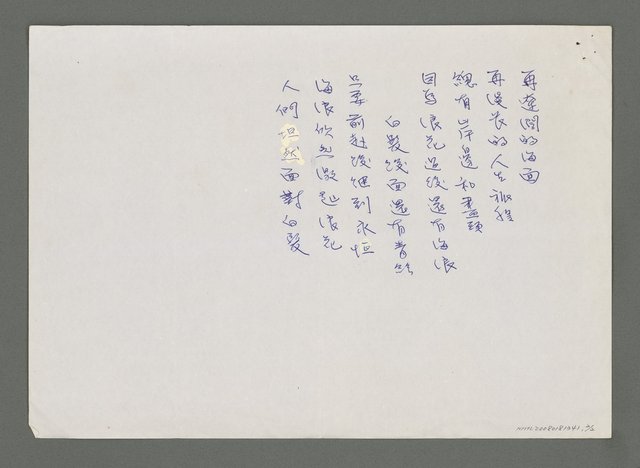 再遼闊的海面
再漫長的人生旅程
總有岸邊和盡頭
因為浪花過後還有海浪
白髮後面還有青絲
只要前赴後繼到永恒
海浪欣然激起浪花
人們坦然面對白髮